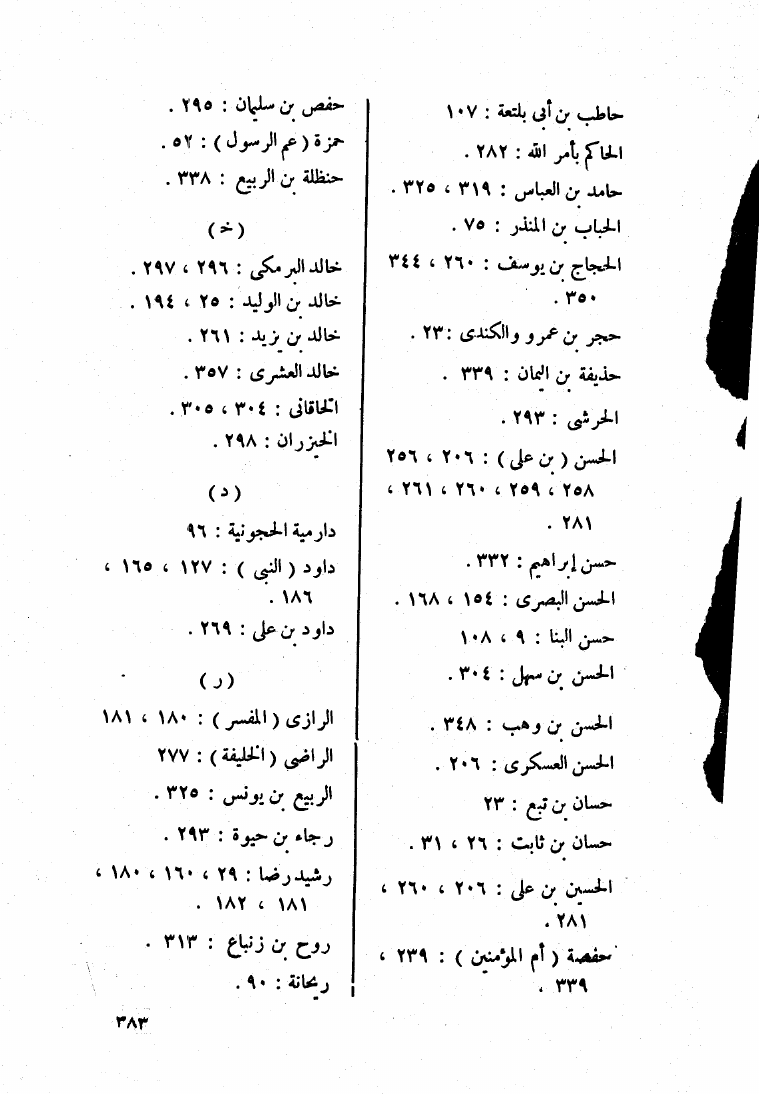 حاطب بن أبى بلتعة : ١٠٧
الحاكم بأمر الله : ٢٨٢ .
حامد بن العباس : ٣١٩ ، ٣٢٥ .
الحباب بن المنذر : ٧٥ .
الحجاج بن يوسف : ٢٦٠ ، ٣٤٤
٣٥٠ .
حجر بن عمرو والكندى : ٢٣ .
حذيفة بن اليمان : ٣٣٩ .
الحرشى : ٢٩٣ .
الحسن ( بن على ) : ٢٠٦ ، ٢٥٦
٢٥٨ ، ٢٥٩ ، ٢٦٠ ، ٢٦١ ،
٢٨١ .
حسن إبراهيم : ٣٣٢ .
الحسن البصرى : ١٥٤ ، ١٦٨ .
حسن البنا : ٩ ، ١٠٨
الحسن بن سهل : ٣٠٤ .
الحسن بن وهب : ٣٤٨ .
الحسن العسكرى : ٢٠٦ .
حسان بن تبع : ٢٣
حسان بن ثابت : ٢٦ ، ٣١ .
الحسين بن على : ٢٠٦ ، ٢٦٠ ،
٢٨١ .
حفصة ( أم المؤمنين ) : ٢٣٩ ،
٣٣٩ .
حفص بن سليمان : ٢٩٥ .
حمزة ( عم الرسول ) : ٥٢ .
حنظلة بن الربيع : ٣٣٨ .
( خ )
خالد البرمكى : ٢٩٦ ، ٢٩٧ .
خالد بن الوليد : ٢٥ ، ١٩٤ .
خالد بن يزيد : ٢٦١ .
خالد العشرى : ٣٥٧ .
الخاقانى : ٣٠٤ ، ٣٠٥ .
الخيزران : ٢٩٨ .
( د )
دارمية الحجونية : ٩٦
داود ( النبى ) : ١٢٧ ، ١٦٥ ،
١٨٦ .
داود بن على : ٢٦٩ .
( ر )
الرازى ( المفسر ) : ١٨٠ ، ١٨١
الراضى ( الخليفة ) : ٢٧٧
الربيع بن يونس : ٣٢٥ .
رجاء بن حيوة : ٢٩٣ .
رشيد رضا : ٢٩ ، ١٦٠ ، ١٨٠ ،
١٨١ ، ١٨٢ .
روح بن زنباع : ٣١٣ .
ريحانة : ٩٠ .
٣٨٣